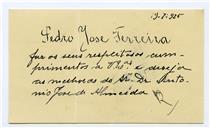 19-7-925
Pedro José Ferreira
faz os seus respeitosos cum-
primentos a V. Ex.ª e deseja
as melhoras do Sr. Dr. Antó-
nio José de Almeida